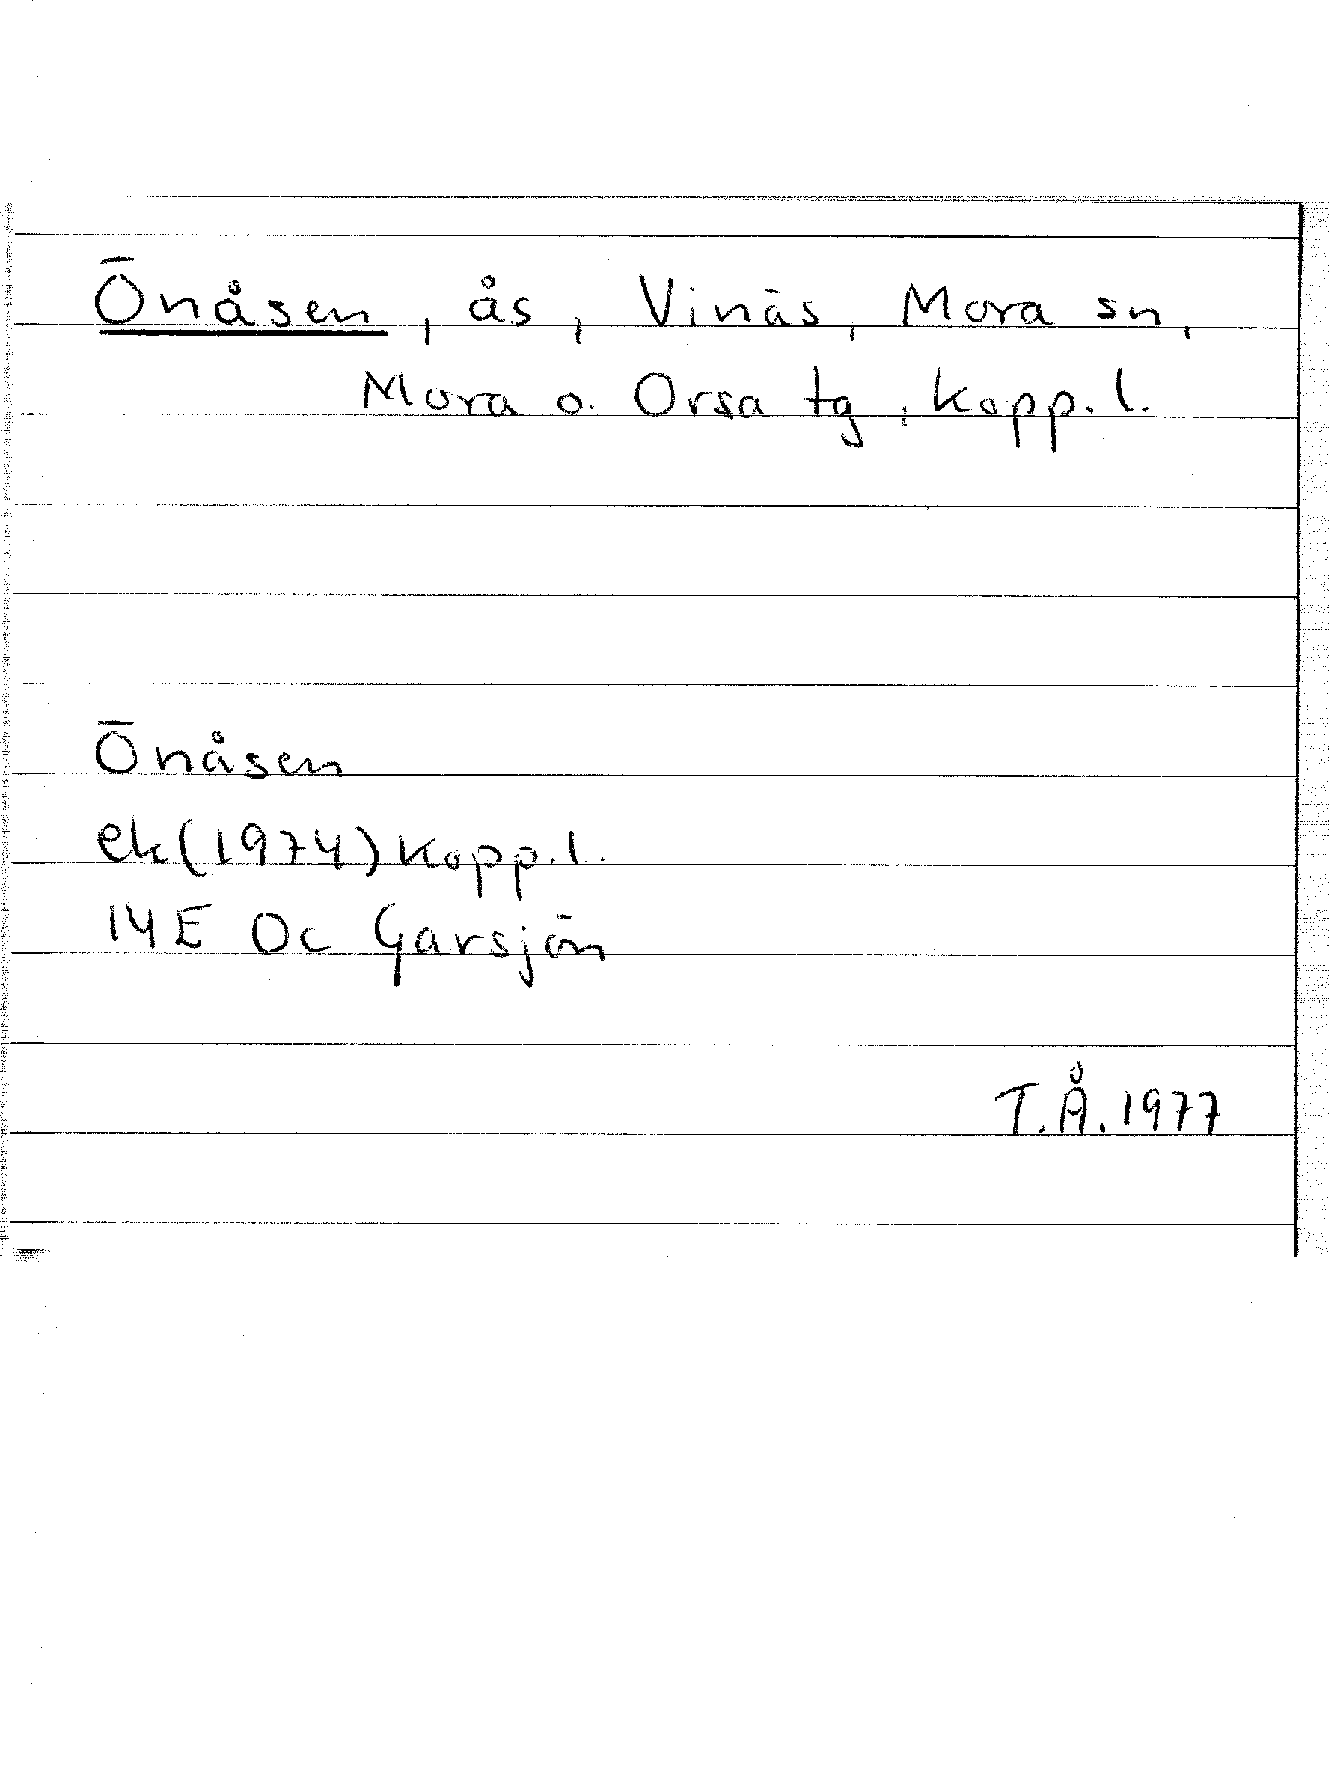 Önåsen, ås, Vinäs, Mora sn,
Mora o. Orsa tg, Kopp.l.
Önåsen
ek(1974)Kopp.l.
14E 0c Garsjön
T.Å.1977